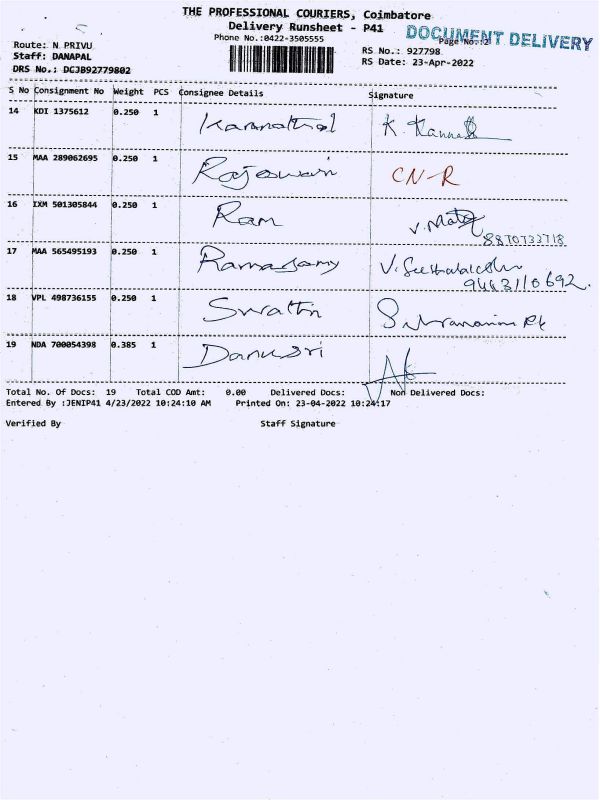 THE PROFESSIONAL COURIERS, Coimbatore
Delivery Runsheet - P41
DOCUMENT DELIVERY
Phone No.:0422-3505555
Page No.:2
Route: N PRIVU
RS No.: 927798
Staff: DANAPAL
RS Date: 23-Apr-2022
DRS No.: DCJB92779802
S No Consignment No Weight PCS Consignee Details Signature
14 KDI 1375612 0.250 1 Kannathal K. Kannath
15 MAA 289062695 0.250 1 Rajeswari CN-R
16 IXM 501305844 0.250 1 Ram V.
8870733718
17 MAA 565495193 0.250 1 Ramasamy V.
9463110692.
18 VPL 498736155 0.250 1 Swathi
19 NDA 700054398 0.385 1 Danusri
Total No. Of Docs: 19 Total COD Amt: 0.00 Delivered Docs: Non Delivered Docs:
Entered By :JENIP41 4/23/2022 10:24:10 AM Printed On: 23-04-2022 10:24:17
Verified By Staff Signature